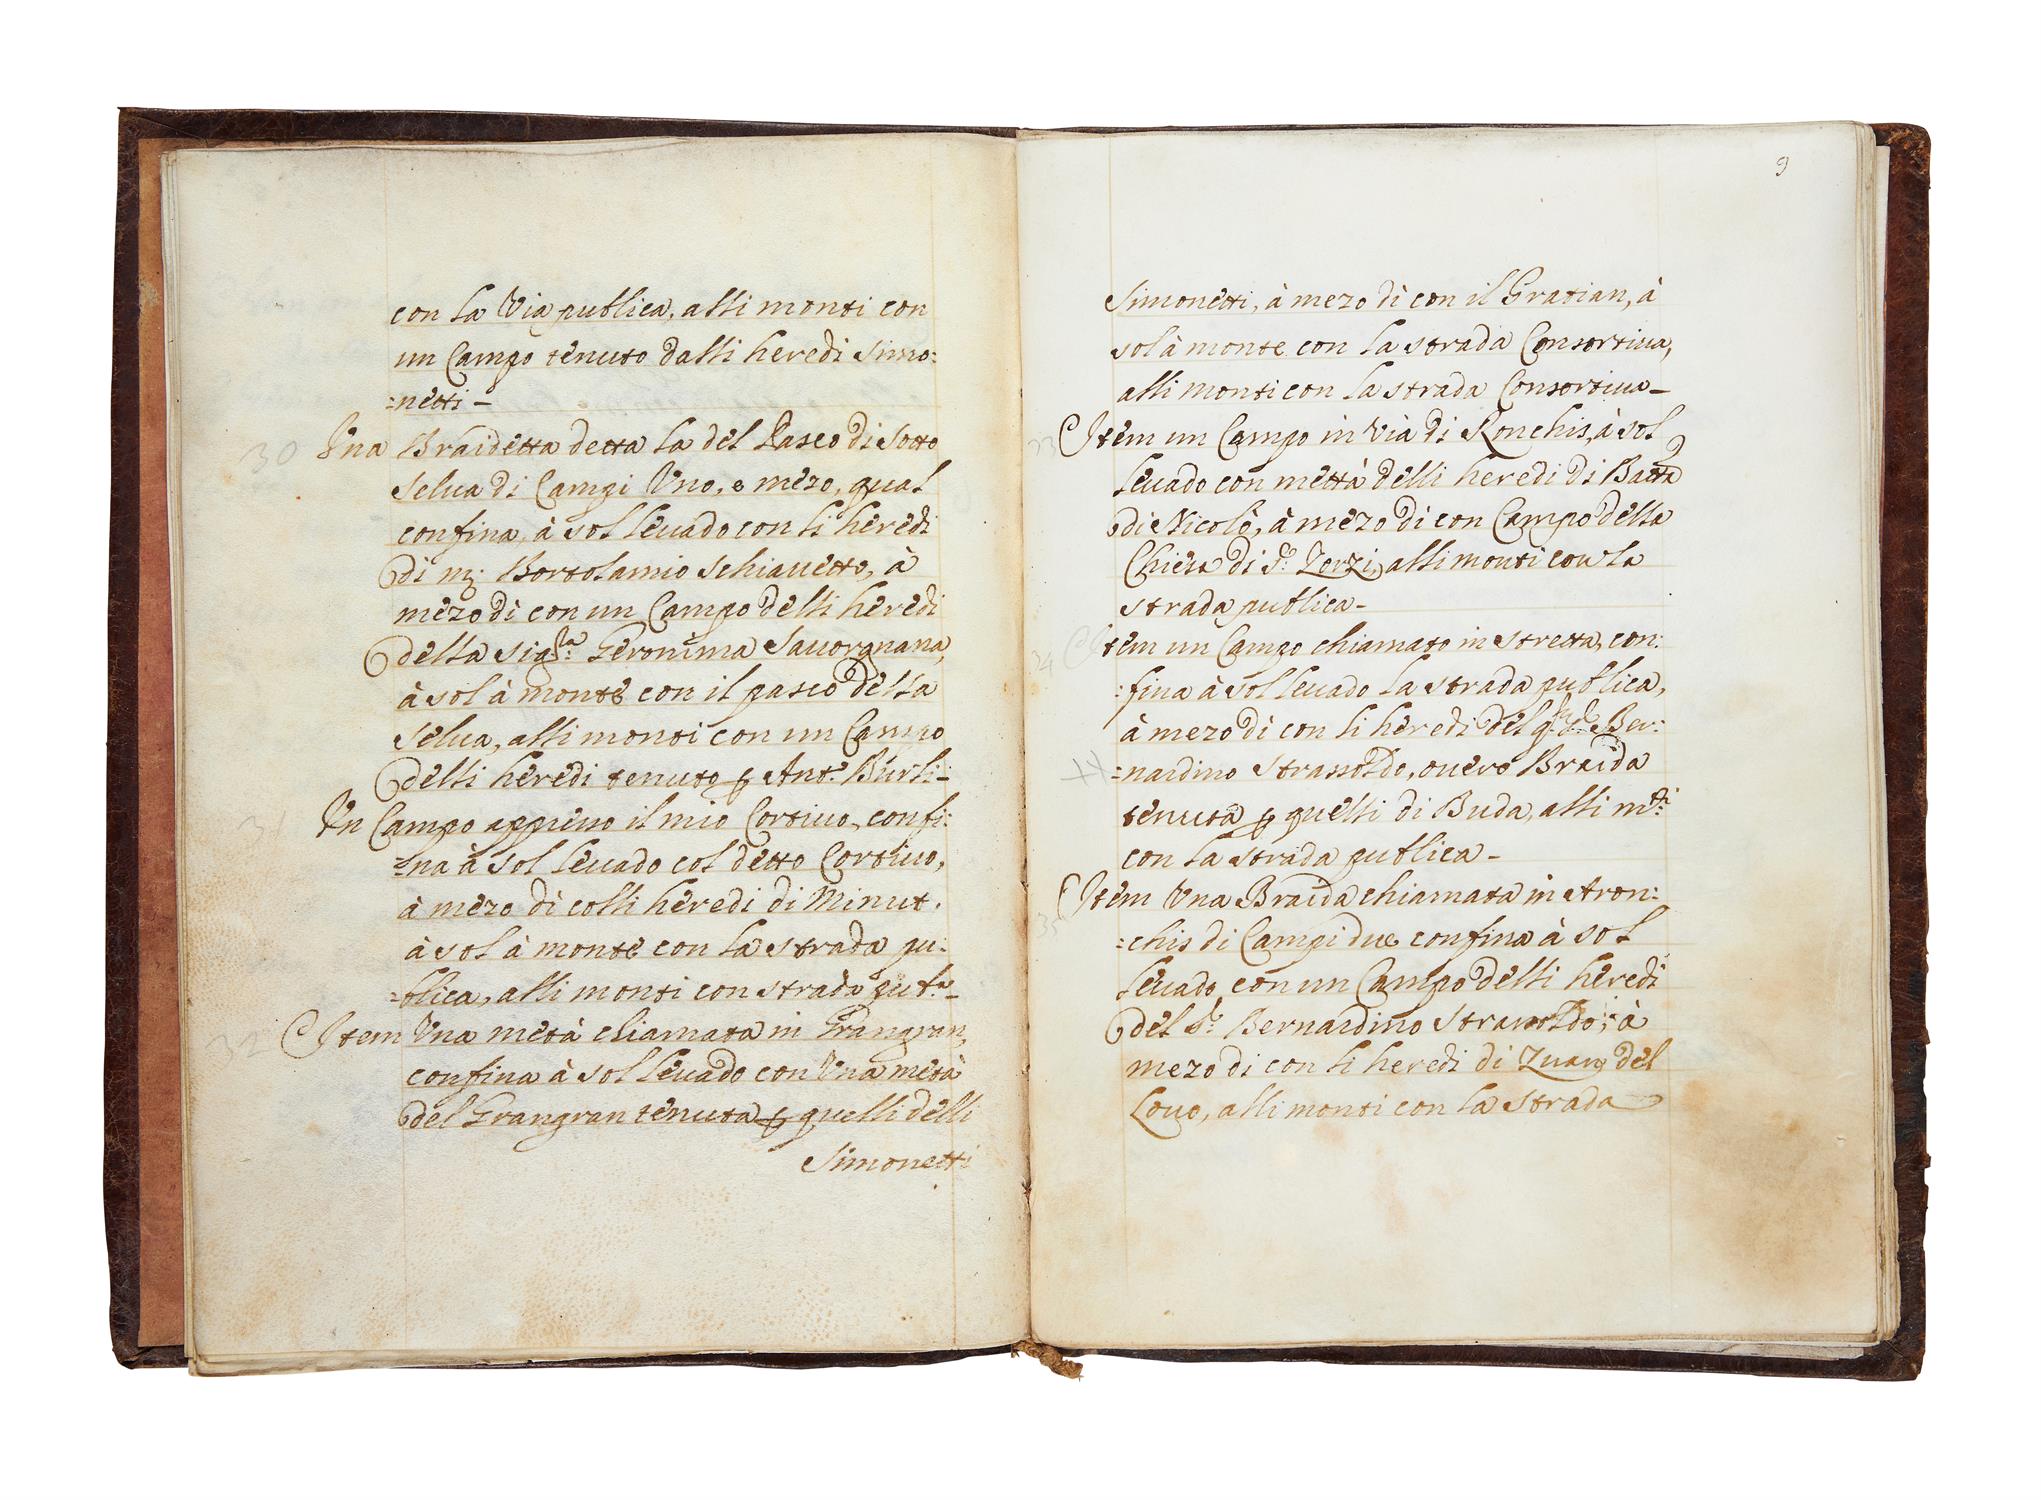 con la Via publica, alli monti con
un Campo tenuto dalli heredi Simo:
=netti-
30 Una Braidetta detta la del Pasco di Sotto
Selua di Campi Uno, e mezo, qual
confina, à sol leuado con li heredi
di m: Bortolamio Schiauetto, à
mezo dì con un Campo delli heredi
della Sig:ra Geronima Sauorgnana,
à sol à monte con il pasco della
Selua, alli monti con un Campo
delli heredi tenuto p Ant:o Burli-
31 Un Campo appreuo il mio Cortiuo, confi:
=na à sol leuado col detto Cortiuo,
à mezo dì colli heredi di Minut.
à sol à monte con la strada pu:
=blica, alli monti con strada pub:a-
32 Item Una metà chiamata in Grangran,
confina à sol leuado con Una metà
del Grangran tenuta p quelli delli
Simonetti
9
Simonetti, à mezo dì con il Gratian, à
sol à monte con la strada Consortiua,
alli monti con la strada Consortiua-
33 Item un Campo in Via di Ronchis, à sol
leuado con mettà delli heredi di Batta
di Nicolò, à mezo dì con Campo della
Chiesa di S: Zorzi, alli monti con la
strada publica-
34 Item un Campo chiamato in Stretta, con:
:fina à sol leuado la strada publica,
à mezo dì con li heredi del Ber:
=nardino Strassoldo, ouero Braida
tenuta p quelli di Buda, alli m:ti
con la strada publica-
35 Item Una Braida chiamata in Aron:
=chis di Campi due confina à sol
leuado con un Campo delli heredi
del S:r Bernardino Strasoldo, à
mezo di con li heredi di Zuan del
Louo, alli monti con la strada